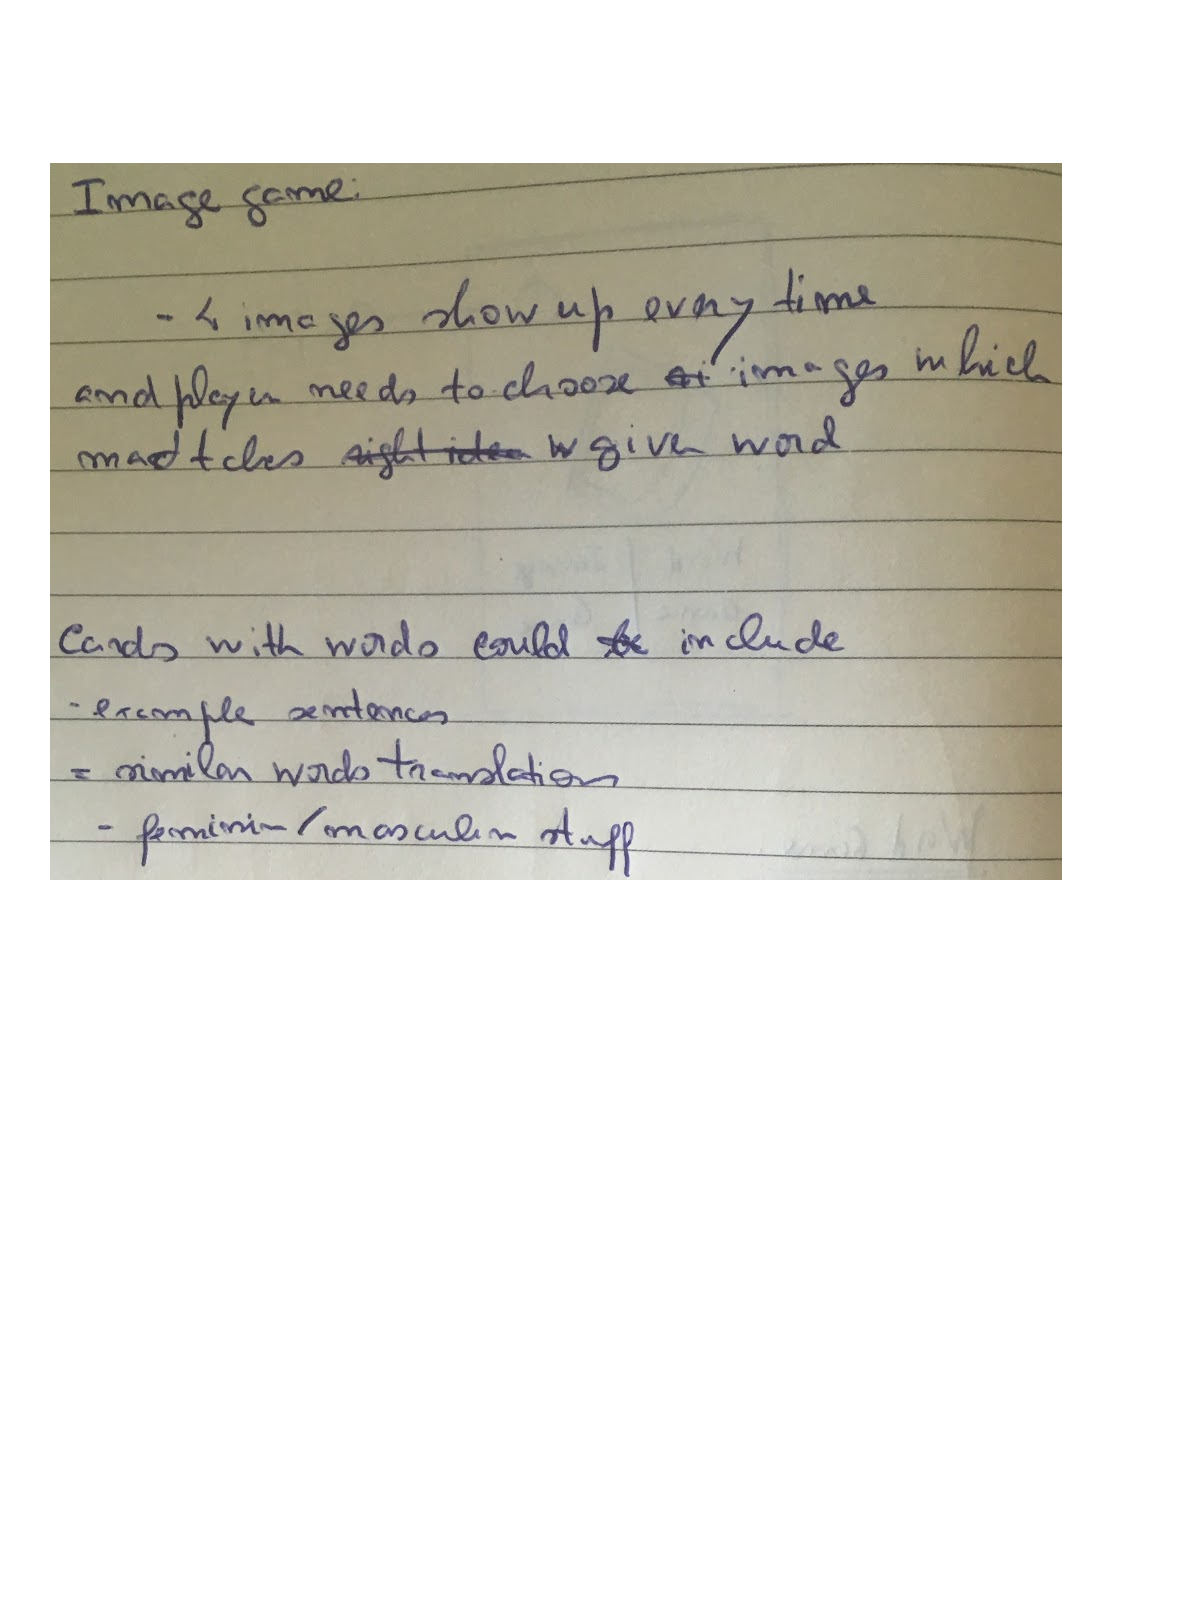 Image game:
- 4 images show up every time
and player needs to choose images which
matches given word
Cards with words could include
- example sentences
= similar words translation
- feminin/masculin stuff